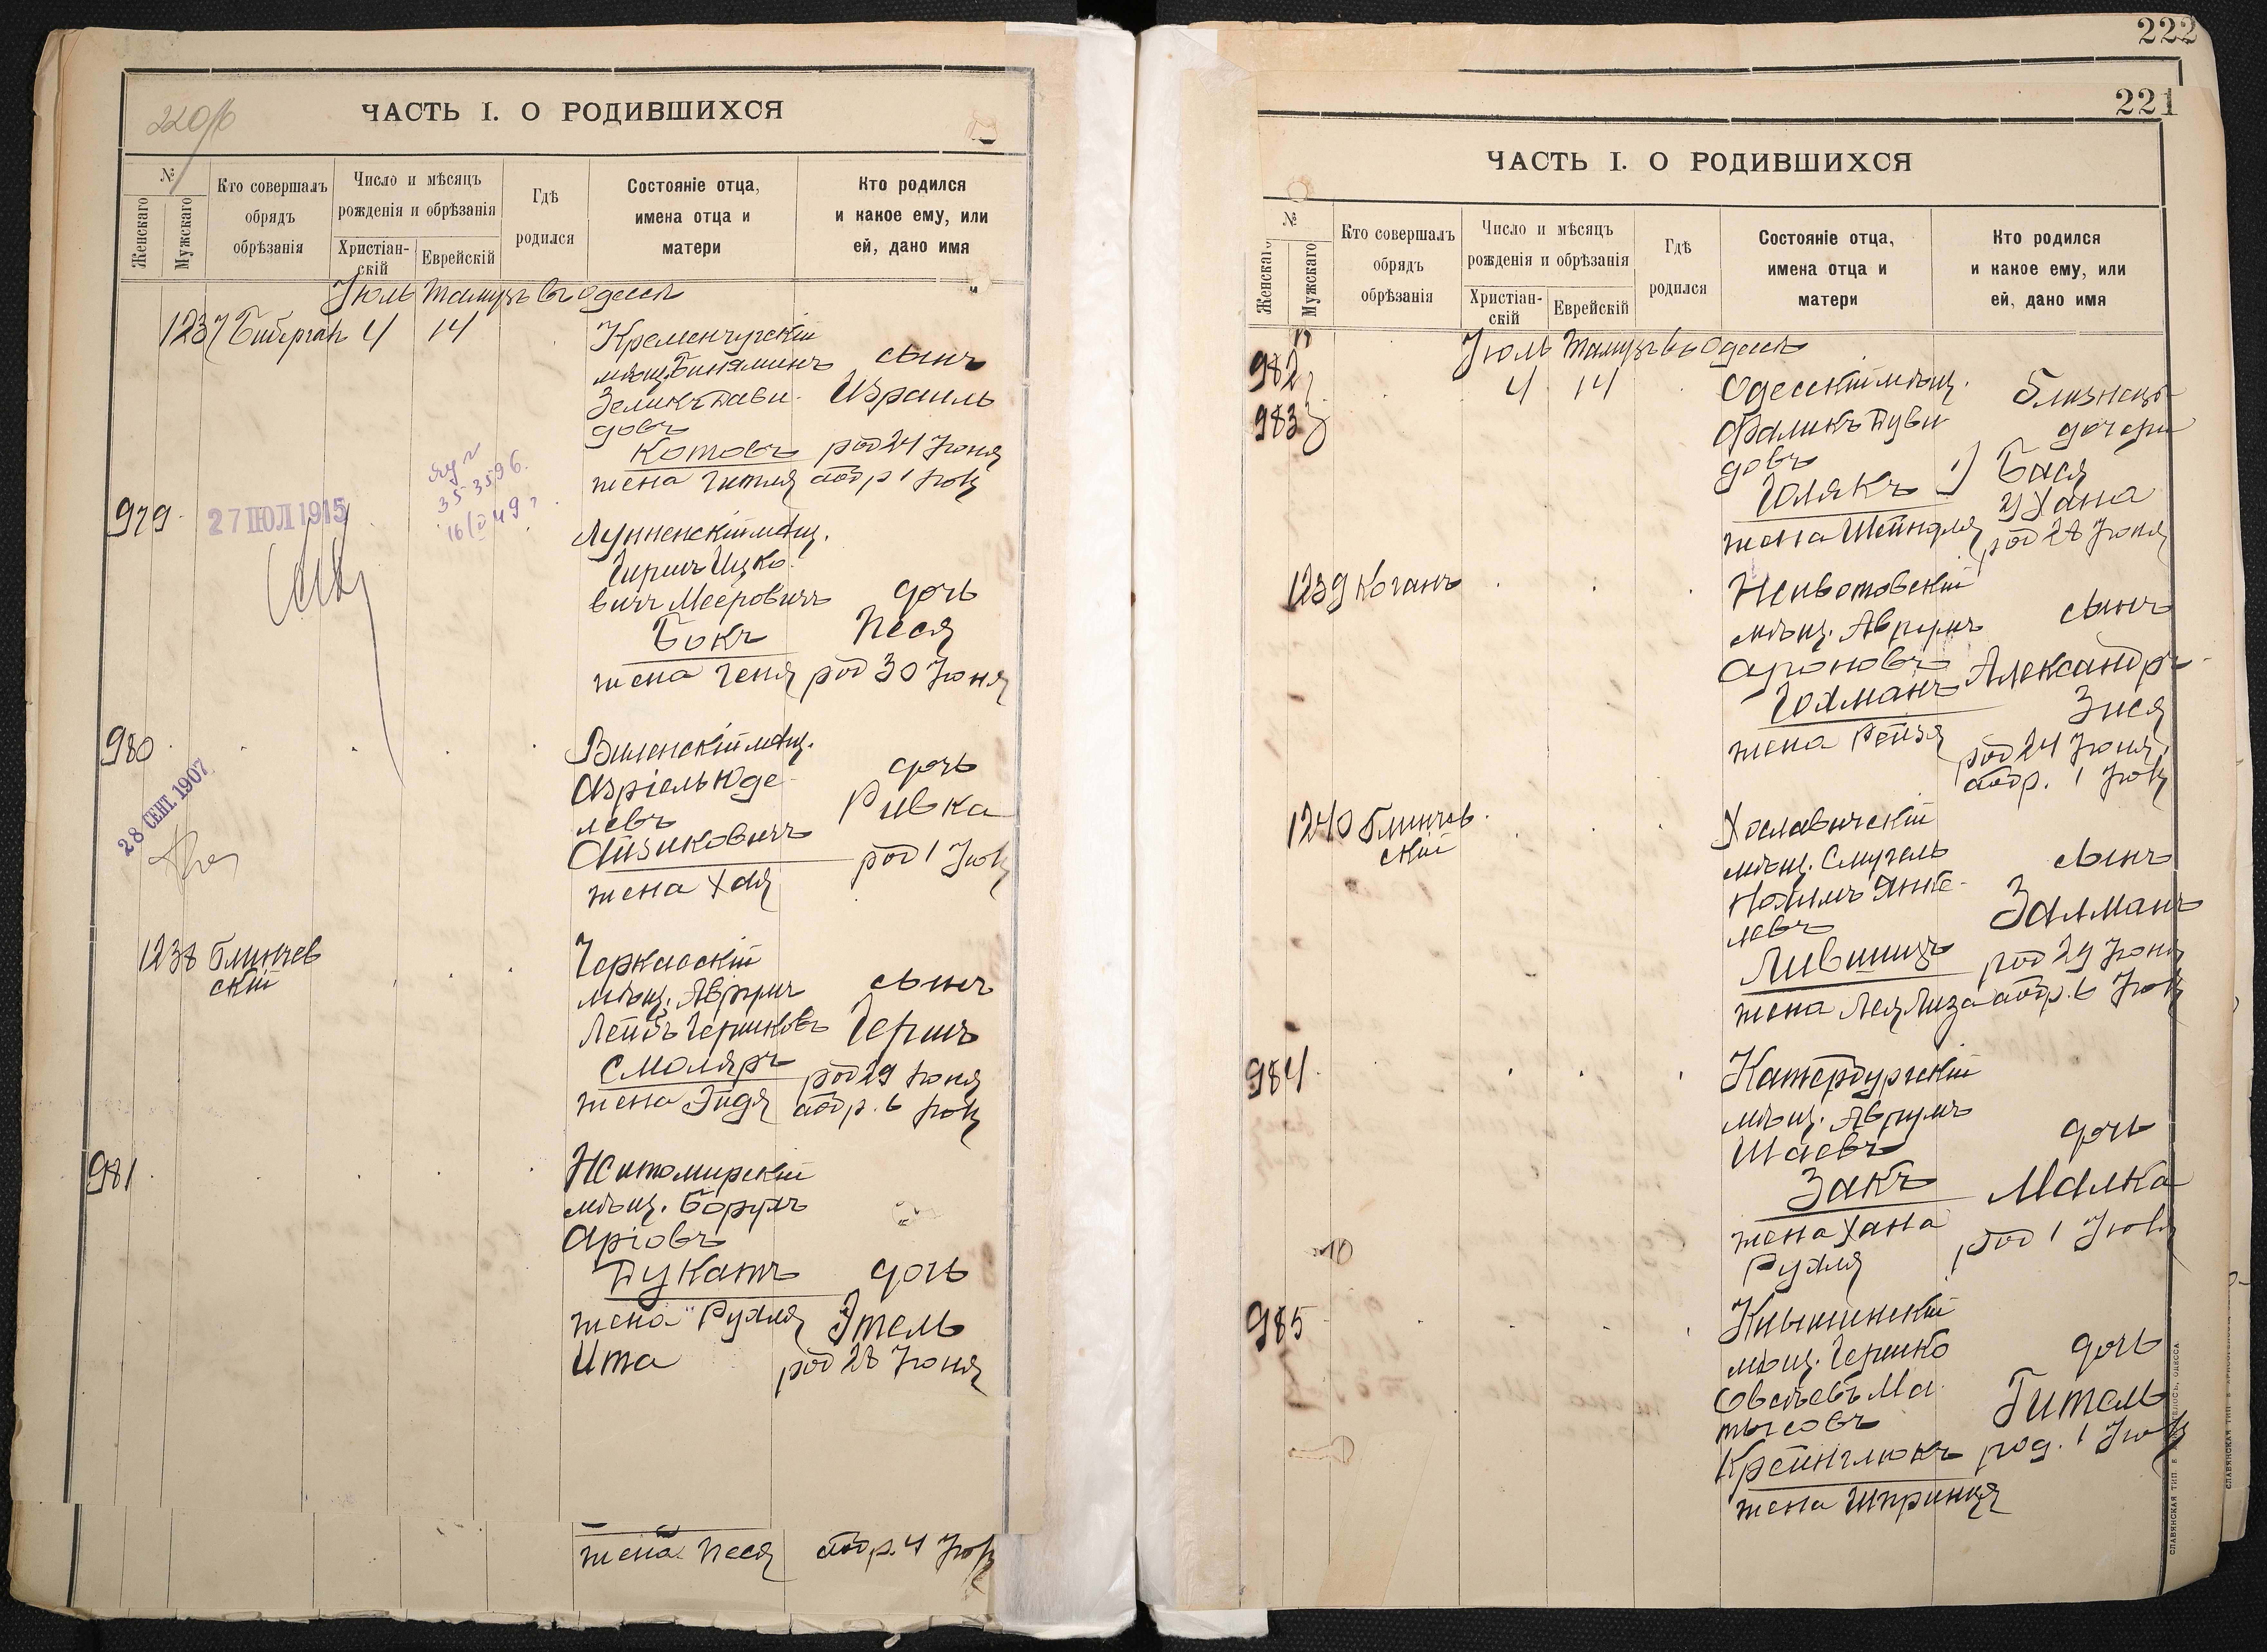 220об
ЧАСТЬ I. О РОДИВШИХСЯ
№
Женскаго
Мужскаго
Кто совершалъ
обрядъ
обрѣзанія
Число и мѣсяцъ
рожденія и обрѣзанія
Христіан-
скій
Еврейскій
Гдѣ
родился
Состояніе отца,
имена отца и
матери
Кто родился
и какое ему, или
ей, дано имя
Іюль Тамузъ въ Одессѣ
1237 4 14
Кременчугскій
мѣщ. Биніаминъ
Зеликъ Дави-
довъ
Котовъ
жена Гитля
сынъ
Израиль
род 24 Іюня
обр 1 Іюл
979
27 ІЮЛ 1915
35-3596.
Лунненскій мѣщ.
Гиршъ Ицко-
вичъ Мееровичъ
Бокъ
жена Геня
дочь
Песя
род 30 Іюня
980
28 СЕНТ. 1907
Виленскій мѣщ.
Азріель Юде-
левъ
Айзиковичъ
жена Хая
дочь
Ривка
род 1 Іюл
1238 Блинчев
скій
Черкасскій
мѣщ. Аврумъ
Лейбъ Гершковъ
Смоляръ
жена Эйдя
сынъ
Гершъ
род 29 Іюня
обр. 6 Іюл
981
Житомирскій
мѣщ. Борухъ
Аріовъ
Дукатъ
жена Рухля
Ита
дочь
Этель
род 28 Іюня
жена Песя обр. 4 Іюл
222
221
ЧАСТЬ I. О РОДИВШИХСЯ
№
Женскаго
Мужскаго
Кто совершалъ
обрядъ
обрѣзанія
Число и мѣсяцъ
рожденія и обрѣзанія
Христіан-
скій
Еврейскій
Гдѣ
родился
Состояніе отца,
имена отца и
матери
Кто родился
и какое ему, или
ей, дано имя
Іюль Тамузъ въ Одессѣ
982
983
4 14
Одесскій мѣщ.
Фаликъ Дуви
довъ
Полякъ
жена Шейндля
близнецы
дочери
1) Бася
2) Хана
род 28 Іюня
1239 Коганъ
мѣщ. Аврумъ
Ароновъ
Гохманъ
жена Рейзя
сынъ
Александръ
Зися
род 24 Іюня,
обр. 1 Іюл
1240 Блинчев
скій
Хославичскій
мѣщ. Смуель
Нохимъ Янке-
левъ
Лившицъ
жена Лея Лиза
сынъ
Залманъ
род 29 Іюня
обр. 6 Іюл
984
Катербургскій
мѣщ. Аврумъ
Шаевъ
Закъ
жена Хана
Рухля
дочь
Малка
род 1 Іюля
985
Кнышинскій
мѣщ. Гершко
Овсѣевъ Ма-
тысовъ
Крейнглюкъ
жена Шпринця
дочь
Гитель
род. 1 Іюл
СЛАВЯНСКАЯ ТИП.